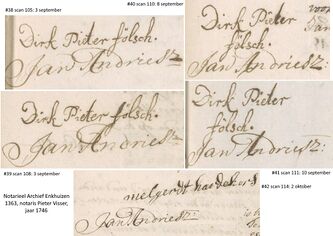 #38 scan 105: 3 september
Dirk Pieter fölsch.
Jan Andriesz:
#40 scan 110: 8 september
Dirk Pieter
fölsch.
Jan Andriesz:
Dirk Pieter fölsch.
Jan Andriesz:
#39 scan 108: 3 september
Dirk Pieter
fölsch.
Jan Andriesz:
#41 scan 111: 10 september
#42 scan 114: 2 oktober
Notarieel Archief Enkhuizen
1363, notaris Pieter Visser,
jaar 1746
Jan Andriesz: